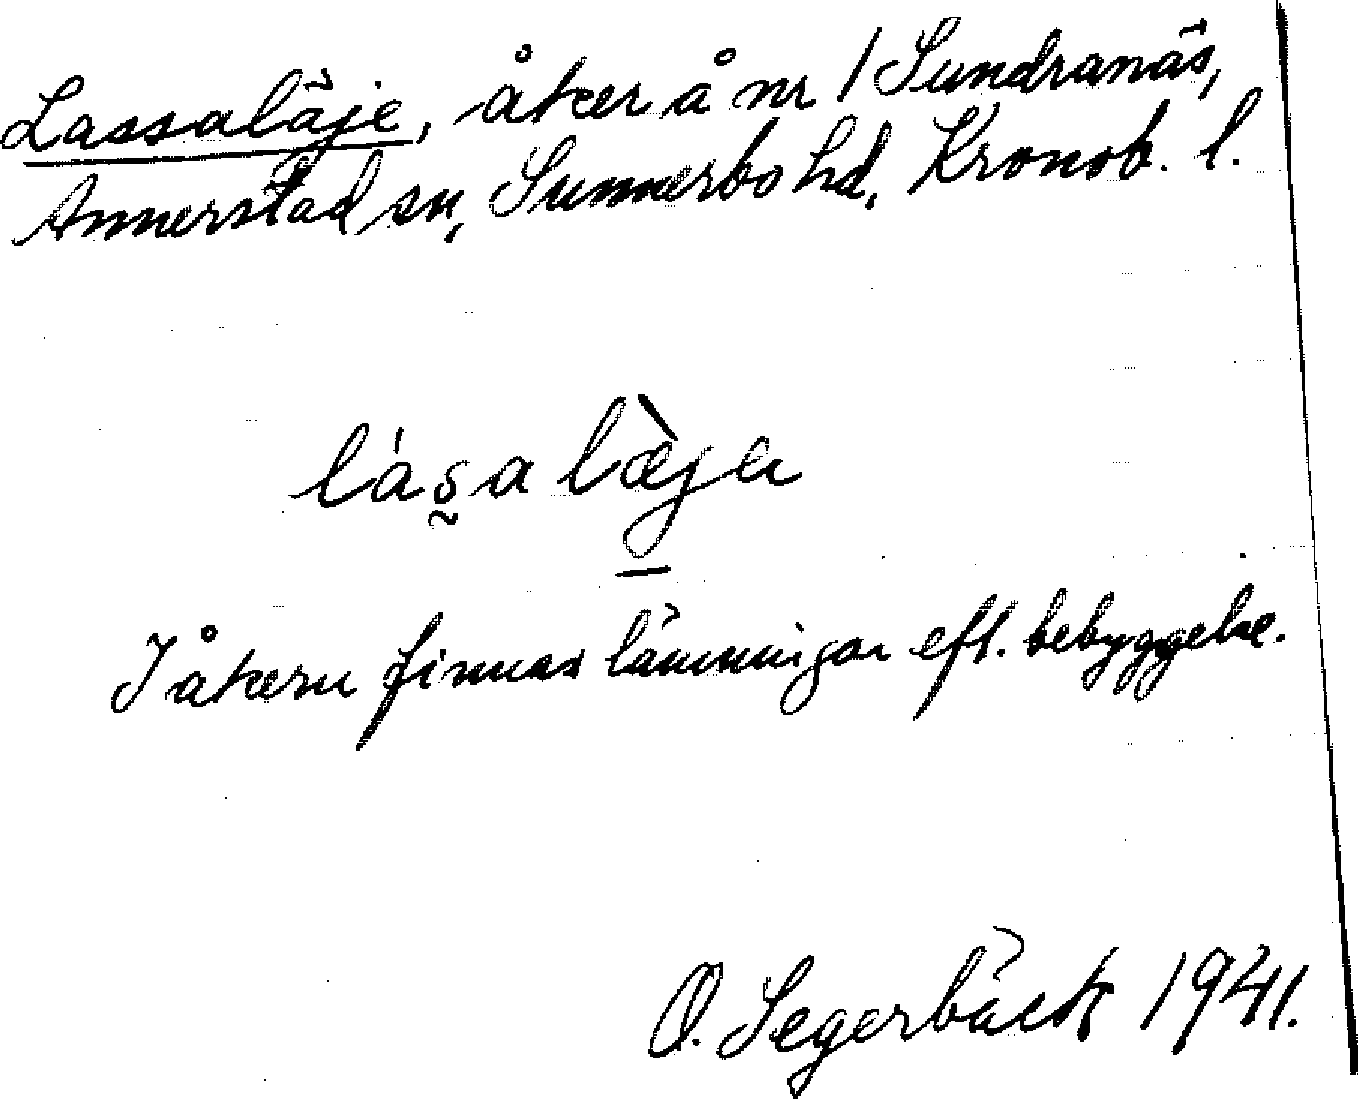 Lassaläje, åker å nr 1 Sundranäs,
Annerstad sn, Sunnerbo hd, Kronob. l.
lásalæ̀jа
I åkern finnas lämningar eft. bebyggelse.
O. Segerbäck 1941.